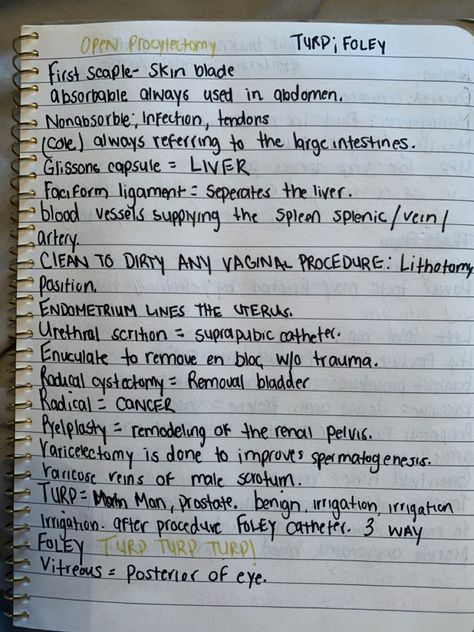 OPEN Procylectomy TURP; FOLEY
First scaple- skin blade
absorbable always used in abdomen.
Nonabsorble; Infection, tendons
(cole) always referring to the large intestines.
Glissons capsule = LIVER
Faciform ligament = Seperates the liver.
blood vessels supplying the spleen splenic/vein/
artery.
CLEAN TO DIRTY ANY VAGINAL PROCEDURE: Lithotomy
Position.
ENDOMETRIUM LINES THE UTERUS.
Urethral scrition = suprapubic catheter.
Enuculate to remove en bloc w/o trauma.
Radical cystectomy = Removal bladder
Radical = CANCER
Pyelplasty = remodeling of the renal pelvis.
Varicelectomy is done to improve spermatogenesis.
Varicose veins of male scrotum.
TURP = Man, prostate. benign, irrigation, irrigation
Irrigation. after procedure FOLEY catheter. 3 WAY
FOLEY TURP TURP TURP!
Vitreous = Posterior of eye.